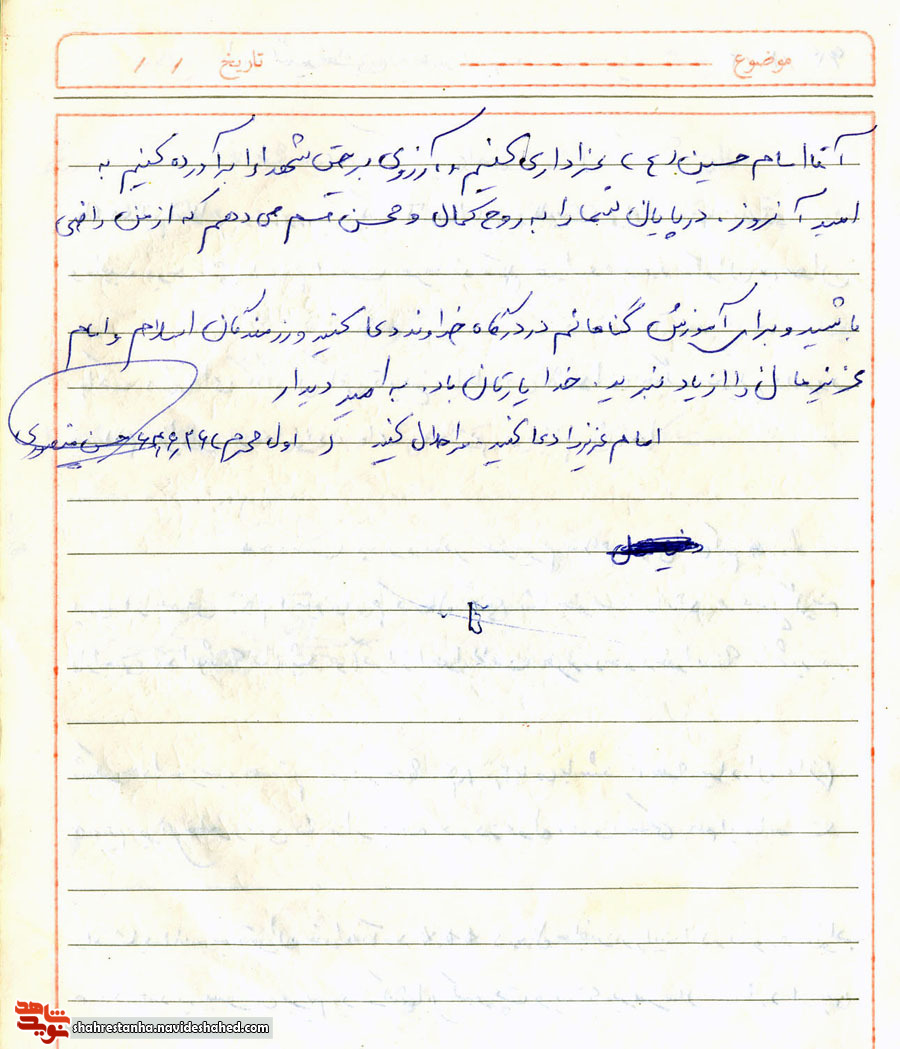 موضوع تاریخ / /
آقا امام حسین (ع) عزاداری کنیم و آرزوی برحق شهدا را برآورده کنیم به
امید آنروز، در پایان شما را به روح کمال و محسن قسم می دهم که از من راضی
باشید و برای آمورزش گناهانم در درگاه خداوند دعا کنید و رزمندگان اسلام و امام
عزیزمان را از یاد نبرید. خدا یارتان باد. به امید دیدار
امام عزیز را دعا کنید مرا حلال کنید ( اول محرم
نوید شاهد
shahrestanha.navideshahed.com